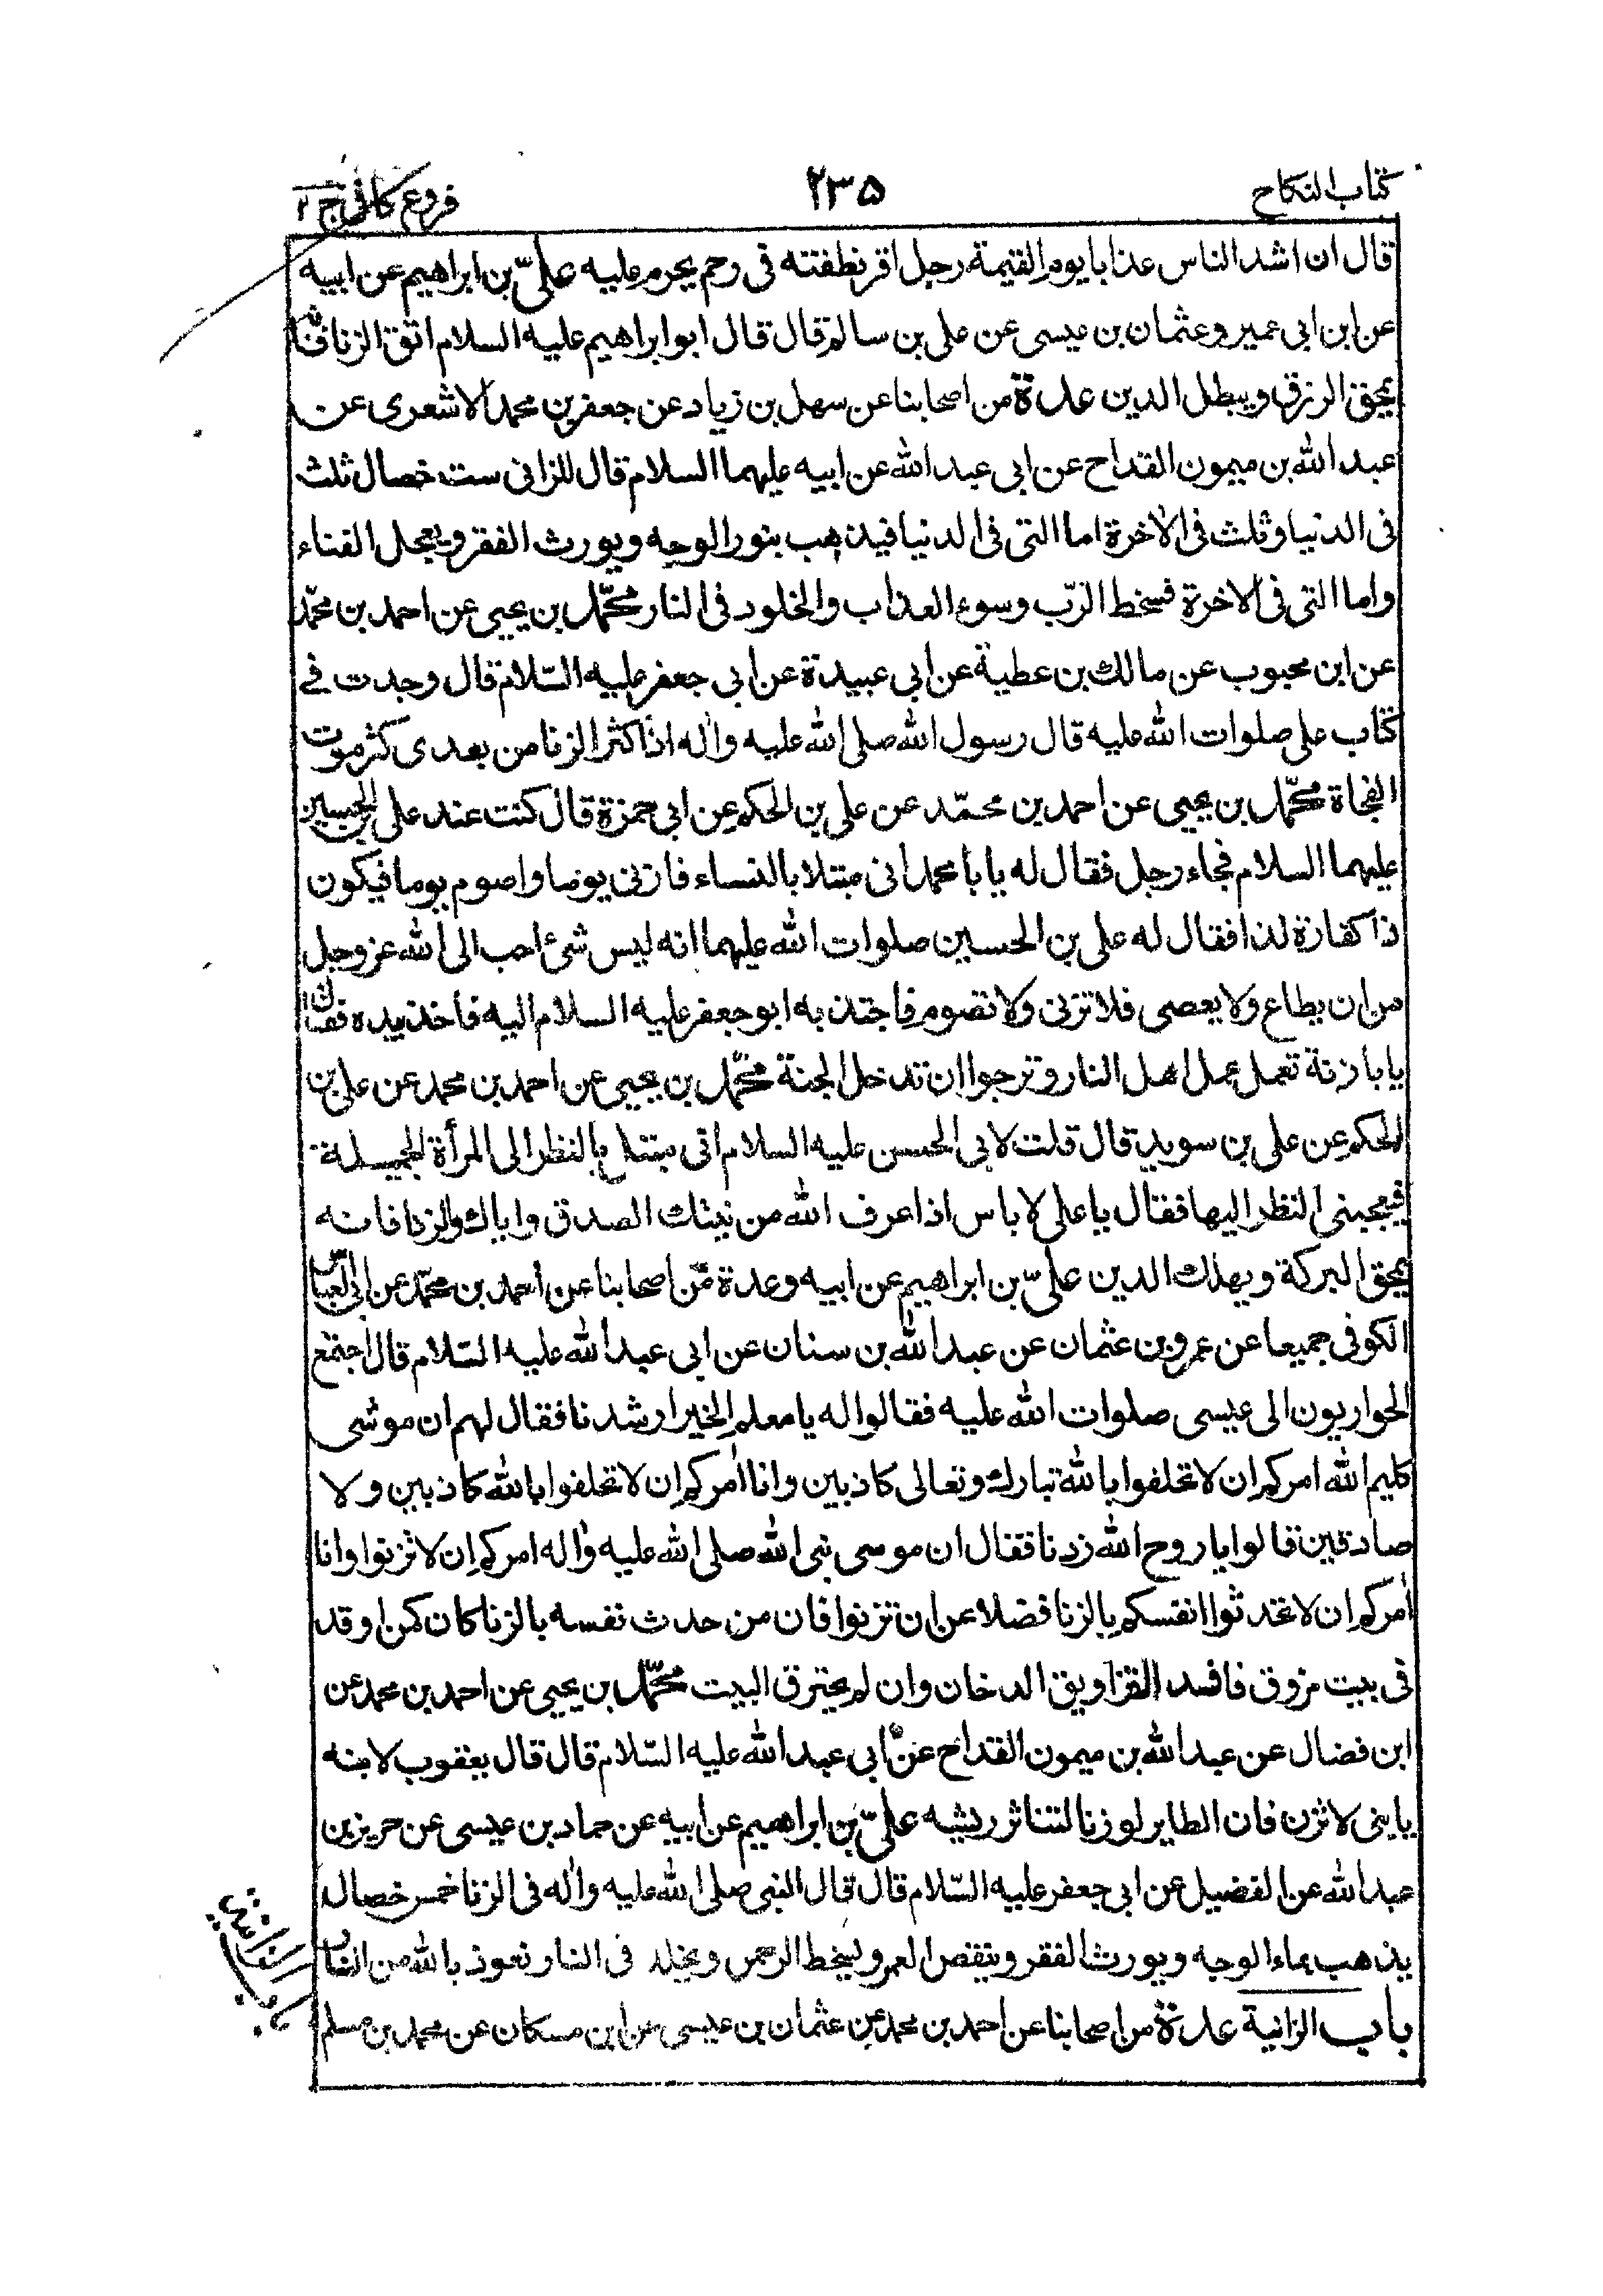 كتاب النكاح ٢٣٥ فروع كافى ج ٢
قال ان اشد الناس عذابا يوم القيمة رجل اقر نطفته فى رحم يحرم عليه علىّ بن ابراهيم عن ابيه
عن ابن ابى عمير وعثمان بن عيسى عن على بن سالم قال قال ابو ابراهيم عليه السلام اتق الزنا فانه
يمحق الرزق ويبطل الدين عدة من اصحابنا عن سهل بن زياد عن جعفر بن محمد الاشعرى عن
عبد الله بن ميمون القداح عن ابى عبد الله عن ابيه عليهما السلام قال للزانى ست خصال ثلث
فى الدنيا وثلث فى الاخرة اما التى فى الدنيا فيذهب بنور الوجه ويورث الفقر ويعجل الفناء
واما التى فى الاخرة فسخط الرّب وسوء العذاب والخلود فى النار محمّد بن يحيى عن احمد بن محمّد
عن ابن محبوب عن مالك بن عطية عن ابى عبيدة عن ابى جعفر عليه السّلام قال وجدت فى
كتاب على صلوات الله عليه قال رسول الله صلى الله عليه واله اذا كثر الزنا من بعدى كثر موت
الفجاة محمّد بن يحيى عن احمد بن محمّد عن على بن الحكم عن ابى حمزة قال كنت عند على بن الحسين
عليهما السلام فجاءه رجل فقال له يا با محمد انى مبتلا بالنساء فازنى يوما واصوم يوما فيكون
ذا كفارة لذا فقال له على بن الحسين صلوات الله عليهما انه ليس شئ احب الى الله عز وجل
من ان يطاع ولا يعصى فلا تزنى ولا تصوم فاجتذبه ابو جعفر عليه السلام اليه فاخذ بيده فقال
يا با زنة تعمل عمل اهل النار وترجوا ان تدخل الجنة محمّد بن يحيى عن احمد بن محمد عن على بن
الحكم عن على بن سويد قال قلت لابى الحسن عليه السلام انى مبتلى بالنظر الى المرأة الجميلة
فيعجبنى النظر اليها فقال يا على لا باس اذا عرف الله من نيتك الصدق واياك والزنا فانه
يمحق البركة ويهلك الدين علىّ بن ابراهيم عن ابيه وعدة من اصحابنا عن احمد بن محمّد عن ابى العباس
الكوفى جميعا عن عمرو بن عثمان عن عبد الله بن سنان عن ابى عبد الله عليه السّلام قال اجتمع
الحواريون الى عيسى صلوات الله عليه فقالوا له يا معلم الخير ارشدنا فقال لهم ان موسى
كليم الله امركم ان لا تحلفوا بالله تبارك وتعالى كاذبين وانا امركم ان لا تحلفوا بالله كاذبين ولا
صادقين قالوا يا روح الله زدنا فقال ان موسى نبى الله صلى الله عليه واله امركم ان لا تزنوا وانا
امركم ان لا تحدثوا انفسكم بالزنا فضلا عن ان تزنوا فان من حدث نفسه بالزنا كان كمن اوقد
فى بيت مزوق فافسد التزاويق الدخان وان لم يحترق البيت محمّد بن يحيى عن احمد بن محمد عن
ابن فضال عن عبد الله بن ميمون القداح عن ابى عبد الله عليه السّلام قال قال يعقوب لابنه
يا بنى لا تزن فان الطاير لو زنا لتناثر ريشه علىّ بن ابراهيم عن ابيه عن حماد بن عيسى عن حريز بن
عبد الله عن الفضيل عن ابى جعفر عليه السّلام قال قال النبى صلى الله عليه واله فى الزنا خمس خصال
يذهب بماء الوجه ويورث الفقر وينقص العمر ويسخط الرحمن ويخلد فى النار نعوذ بالله من النار
باب الزانية عدة من اصحابنا عن احمد بن محمد عن عثمان بن عيسى عن ابن مسكان عن محمد بن مسلم